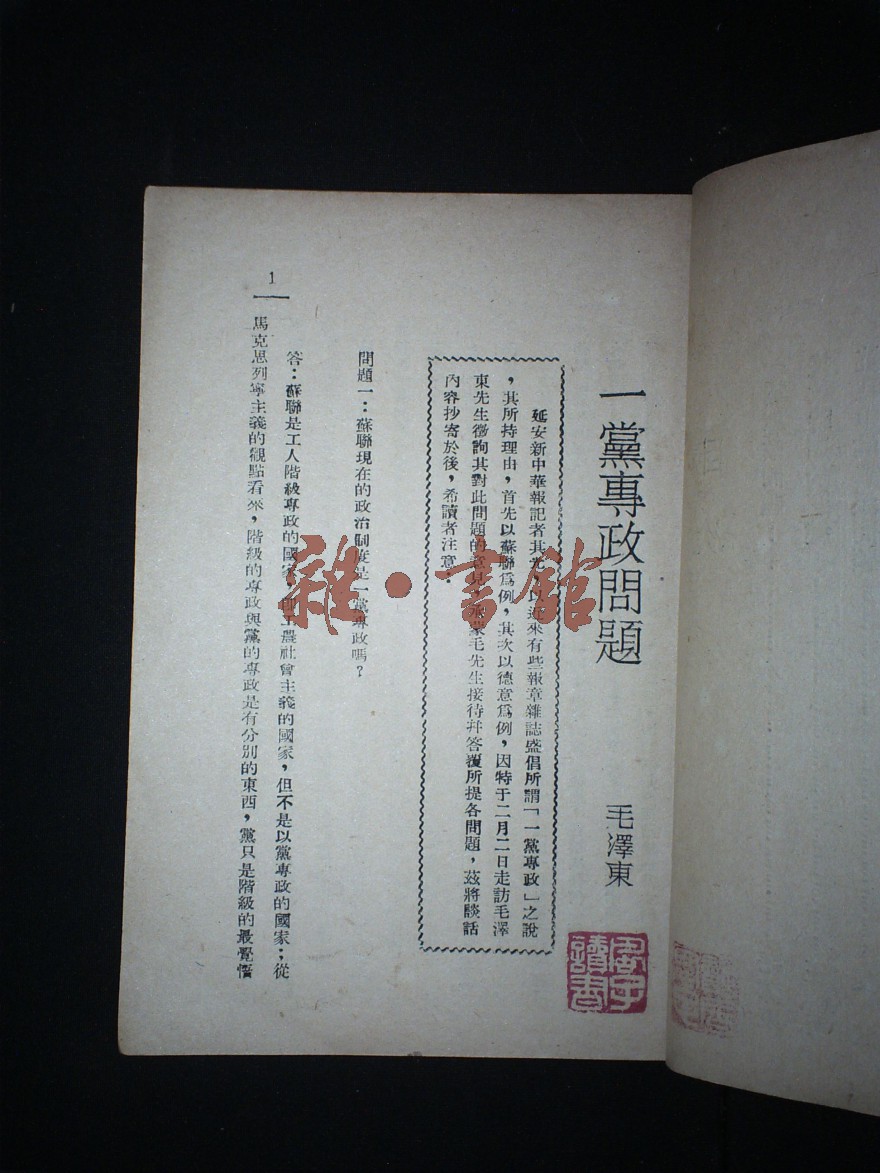 一黨專政問題
毛澤東
延安新中華報記者其光，以近來有些報章雜誌盛倡所謂「一黨專政」之說
，其所持理由，首先以蘇聯爲例，其次以德意爲例，因特于二月二日走訪毛澤
東先生徵詢其對此問題的意見，承蒙毛先生接待幷答覆所提各問題，茲將談話
內容抄寄於後，希讀者注意：
問題一：蘇聯現在的政治制度是一黨專政嗎？
答：蘇聯是工人階級專政的國家，卽工農社會主義的國家，但不是以黨專政的國家；從
馬克思列寧主義的觀點看來，階級的專政與黨的專政是有分別的東西，黨只是階級的最覺悟
1
雜·書館
讀書